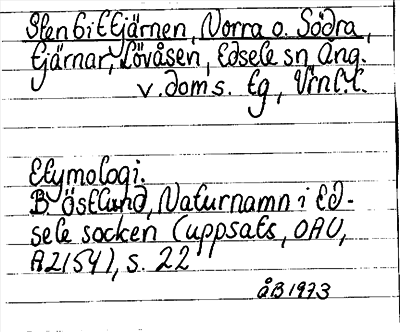 Stenbittjärnen, Norra o. Södra,
tjärnar, Lövåsen, Edsele sn, Ång.
v. doms. tg, Vrnl. l.
Etymologi.
B. Östlund, Naturnamn i Ed-
sele socken (uppsats, OAU,
A2154), s. 22
åB 1973